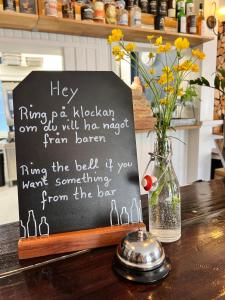 Hey
Ring på klockan
om du vill ha något
från baren
Ring the bell if you
want something
from the bar